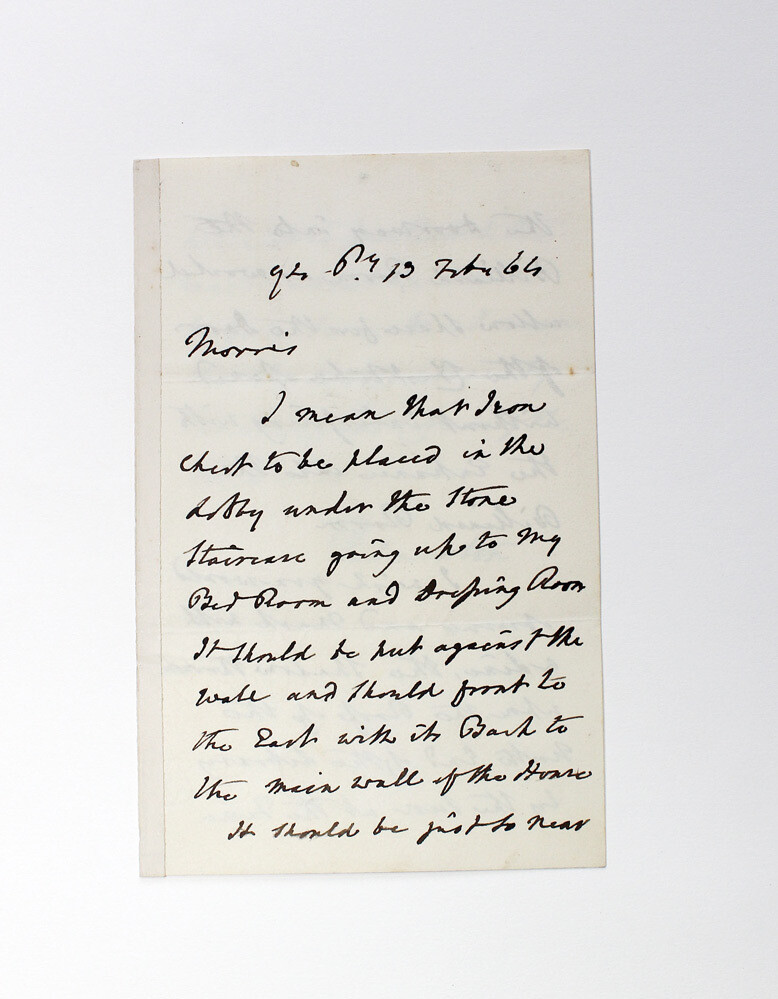 94 P.y 13 Feby 64
Morris
I mean that Iron
Chest to be placed in the
Lobby under the Stone
Staircase going up to my
Bed Room and Dressing Room
It should be put against the
wall and should front to
the East with its Back to
the main wall of the House
It should be just so near